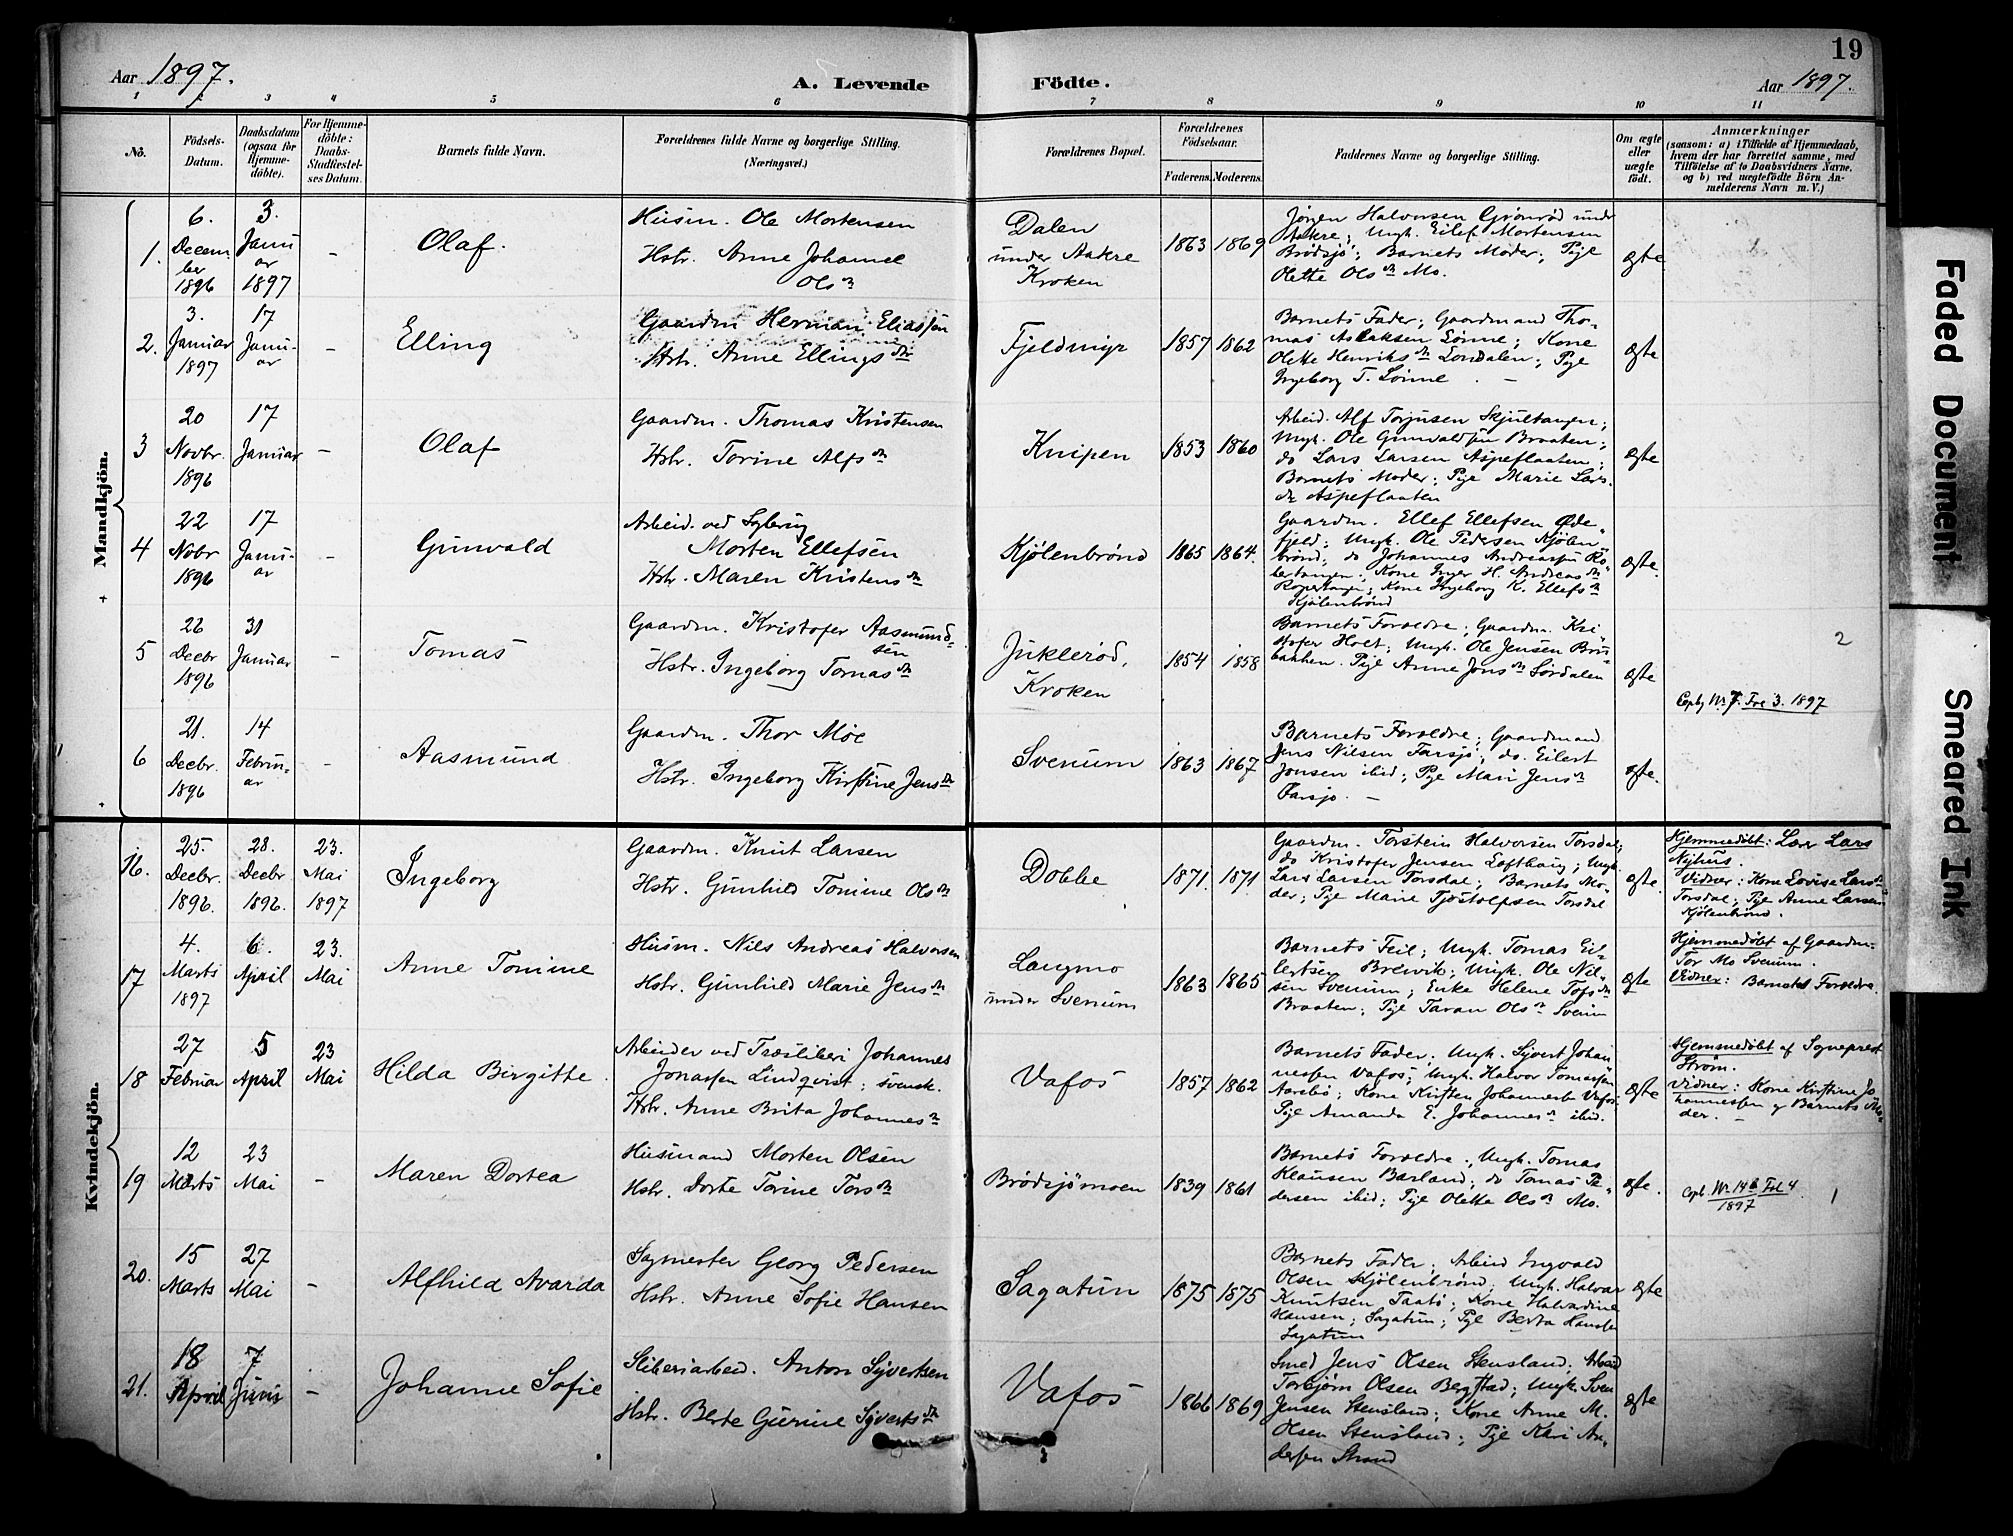 19
Aar 1897.
A. Levende Födte.
Aar 1897.
1 2 3 4 5 6 7 8 9 10 11
Nô.
Födsels-Datum.
Daabsdatum (ogsaa for Hjemme-döbte).
For Hjemme-döbte: Daabs-Stadfæstel-ses Datum.
Barnets fulde Navn.
Forældrenes fulde Navne og borgerlige Stilling. (Næringsvei.)
Forældrenes Bopæl.
Forældrenes Födselsaar.
Faderens. Moderens.
Faddernes Navne og borgerlige Stilling.
Om ægte eller uægte födt.
Anmærkninger
(saasom: a) i Tilfælde af Hjemmedaab, hvem der har forrettet samme, med Tilföielse af to Daabsvidners Navne, og b) ved uægtefödte Börn An-melderens Navn m. V.)
Mandkjön.
1.
6. Decem-ber 1896
3. Janu-ar 1897
-
Olaf.
Husm. Ole Mortensen
Hstr. Anne Johanne Olsdtr
Dalen
under Aakre
Kroken
1863 1869
Jørgen Halvorsen Grønrød under
Aakre; Ungk. Eilef Mortensen
Brødsjø; Barnets Moder; Pige
Olette Olsdtr Mo.
ægte
2.
3. Januar 1897
17 Janu-ar
-
Elling
Gaardm Herman Eliassen
Hstr. Anne Ellingsdtr
Fjeldmyr
1857 1862
Barnets Fader; Gaardmand Tho-
mas Aslaksen Lønne; Kone
Olette Henriksdtr Londalen; Pige
Ingeborg T. Lønne. -
ægte
3
20 Novbr. 1896
17 Januar
-
Olaf
Gaardm. Thomas Kristensen
Hstr. Torine Alfsdtr
Knipen
1853 1860
Arbeid. Alf Torjusen Skjultangen;
Ungk. Ole Gunvaldsen Braaten;
do Lars Larsen Aspeflaaten;
Barnets Moder; Pige Marie Lars-
dtr Aspeflaaten
ægte
4
22 Nobr 1896
17 Janu-ar
-
Gunvald
Arbeid. ved
Morten Ellefsen
Hstr. Maren Kristensdtr
Kjølenbrønd
1865 1864.
Gaardm. Ellef Ellefsen Øde-
fjeld; Ungk. Ole Pedersen Kjølen
brønd; do Johannes Andreassen Ro-
bertangen; Kone Inger H. Andreasdtr
Kone Ingeborg K. Ellefsdtr
Kjølenbrønd
ægte.
5
26 Decbr 1896
31 Januar
-
Tomas
Gaardm. Kristofer Aasmund-
sen
Hstr. Ingeborg Tomasdtr
Juklerød,
Kroken
1854 1858
Barnets Forældre; Gaardm. Kri-
stofer Holt; Ungk. Ole Jensen Bru-
bakken. Pige Anne Jonsdtr Sørdalen
ægte
2
Nr. 7. Fol 3. 1897
6
21. Decbr. 1896
14 Febru-ar
-
Aasmund
Gaardm. Thor Moe
Hstr. Ingeborg Kirstine Jensdtr
Svenum
1863 1867
Barnets Forældre; Gaardmand
Jens Nilsen Farsjø; do. Eilert
Jonsen ibid; Pige Mari Jensdtr
Farsjø. -
ægte.
Kvindekjön.
16.
25. Decbr. 1896.
28. Decbr 1896.
23. Mai 1897
Ingeborg
Gaardm. Knut Larsen
Hstr. Gunhild Tomine Olsdtr
Dobbe
1871. 1871
Gaardm. Torstein Halvorsen Torsdal;
do Kristofer Jensen Lofthaug; Ungk.
Lars Larsen Torsdal; Barnets Mo-
der; Pige Marie Tjøstolfsen Torsdal
ægte.
Hjemmedøbt: Lærer Lars
Nyhus.
Vidner: Kone Lovise Larsdtr
Torsdal; Pige Anne Larsen
Kjølenbrønd.
17
4. Marts 1897
6. April
23. Mai
Anne Tomine
Husm. Nils Andreas Halvorsen
Hstr. Gunhild Marie Jensdtr
Langmo
under Svenum
1863 1865
Barnets Feil; Ungk. Tomas Eil-
ertsen Brevik; Ungk. Ole Nil-
sen Svenum; Enke Helene Tofsdtr
Braaten; Pige Taran Olsdtr Svenum
ægte
Hjemmedøbt af Gaardm.
Tor Mo Svenum.
Vidner: Barnets Forældre.
18
27 Februar
5 April
23 Mai
Hilda Birgitte.
Arbeider ved Træsliberi Johannes
Jonassen Lindqvist; svensk.
Hstr. Anne Brita Johannesdtr
Vafos
1857 1862
Barnets Fader. Ungk. Syvert Johan
nessen Vafos; Ungk. Halvor Tomassen
Aarebø; Kone Kirsten Johannesdt Vafos;
Pige Amanda E. Johannesdtr ibid.
ægte
Hjemmedøbt af Sognepræst
Strøm.
Vidner: Kone Kirstine Jo-
hannessen og Barnets Mo-
der. -
19
12 Marts
23 Mai
-
Maren Dortea
Husmand Morten Olsen
Hstr. Dorte Torine Torsdtr
Brødsjømoen
1839 1861
Barnets Forældre; Ungk. Tomas
Klausen Barland; do Tomas Pe-
dersen ibid; Pige Olette Olsdtr Mo.
ægte.
Nr. 14 b Fol 4.
1897
1
20.
15 Marts
27 Mai
-
Alfhild Avarda
Sagmester Georg Pedersen
Hstr. Anne Sofie Hansen
Sagatun
1875 1875
Barnets Fader; Arbeid Ingvald
Olsen Kjølenbrønd; Ungk. Halvar
Knutsen Taatø; Kone Halvardine
Hansen; Sagatun; Pige Berta Hansen
Sagatun
ægte
21.
18 April
7 Juni
-
Johanne Sofie
Sliberiarbeid. Anton Syvertsen
Hstr. Berte Gurine Syvertsdtr
Vafos
1866 1869
Smed Jens Olsen Stensland. Arbeid
Torbjørn Olsen Bergstad; Ungk. Sven
Jensen Stensland; Kone Anne M.
Olsen Stensland; Pige Kari An-
dersen Strand
ægte
Faded Document
Smeared Ink